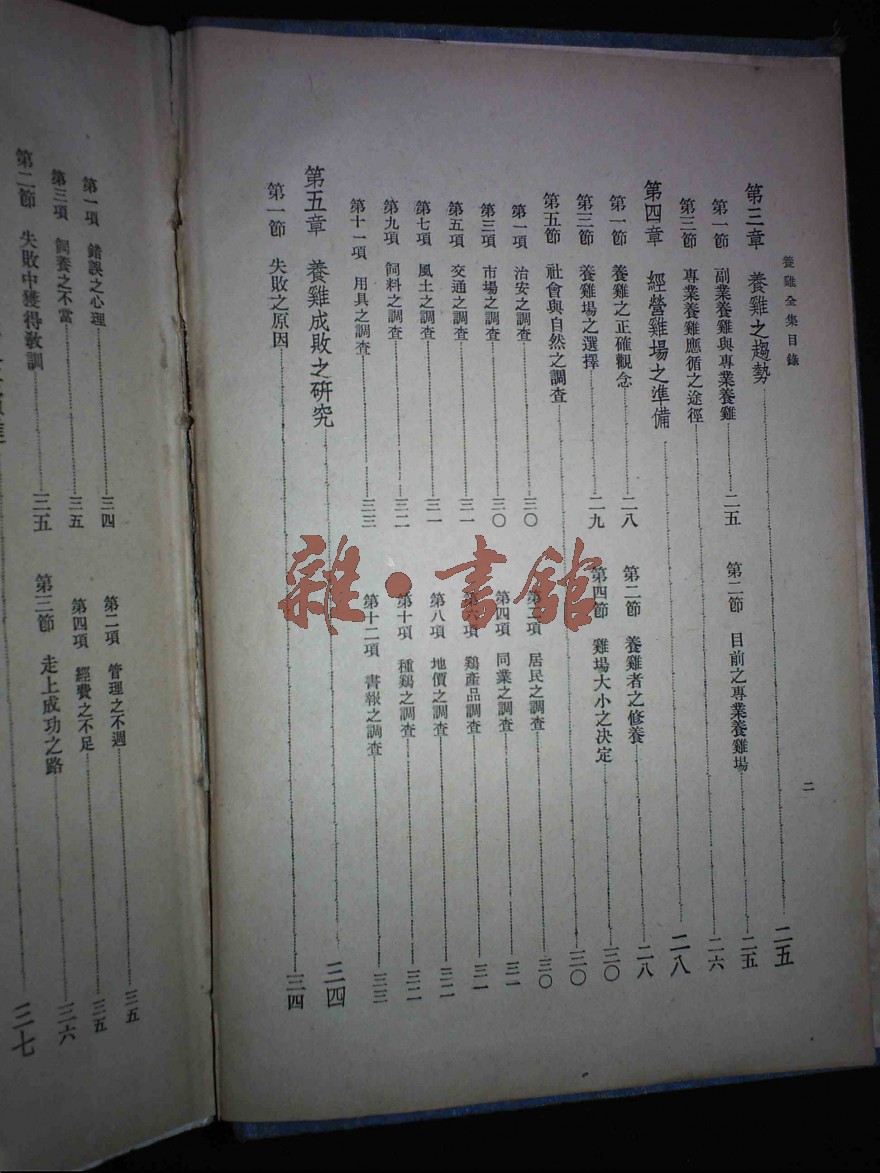 養雞全集目錄
二
第三章 養雞之趨勢 二五
第一節 副業養雞與專業養雞 二五 第二節 目前之專業養雞場 二五
第三節 專業養雞應循之途徑 二六
第四章 經營雞場之準備 二八
第一節 養雞之正確觀念 二八 第二節 養雞者之修養 二八
第三節 養雞場之選擇 二九 第四節 雞場大小之决定 三〇
第五節 社會與自然之調查 三〇
第一項 治安之調查 三〇 第二項 居民之調查 三〇
第三項 市場之調查 三〇 第四項 同業之調查 三一
第五項 交通之調查 三一 第六項 鷄產品調查 三一
第七項 風土之調查 三一 第八項 地價之調查 三二
第九項 飼料之調查 三二 第十項 種鷄之調查 三二
第十一項 用具之調查 三三 第十二項 書報之調查 三三
第五章 養雞成敗之研究 三四
第一節 失敗之原因 三四
第一項 錯誤之心理 三四 第二項 管理之不週 三五
第三項 飼養之不當 三五 第四項 經費之不足 三五
第二節 失敗中獲得教訓 三五 第三節 走上成功之路 三六
三七
雜·書館